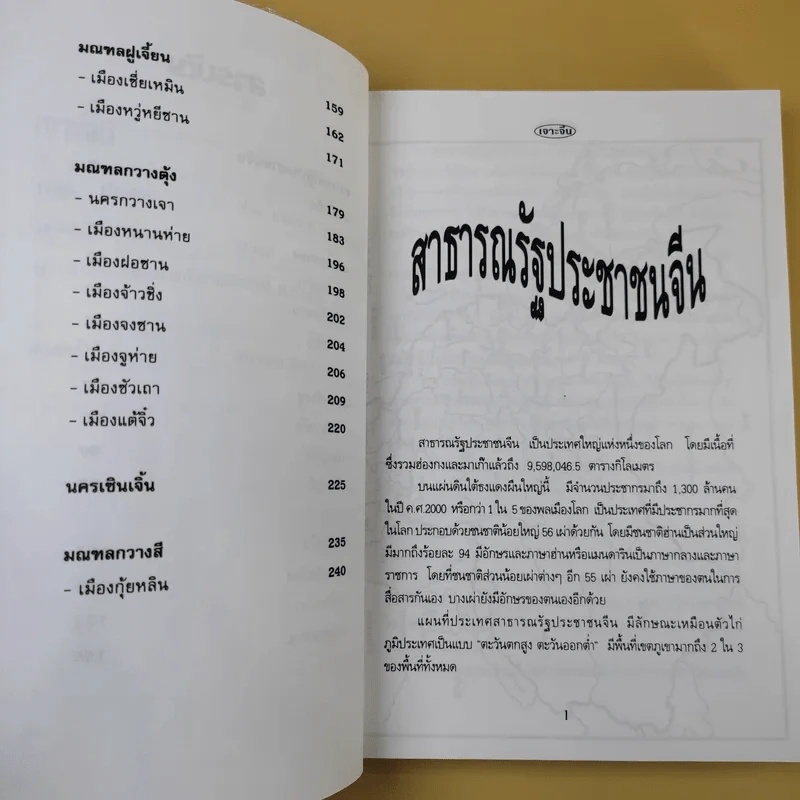 มณฑลฝูเจี้ยน 159
- เมืองเซี่ยเหมิน 162
- เมืองหวู่หยีซาน 171
มณฑลกวางตุ้ง 179
- นครกวางเจา 183
- เมืองหนานห่าย 196
- เมืองฝอซาน 198
- เมืองจ้าวชิ่ง 202
- เมืองจงซาน 204
- เมืองจูห่าย 206
- เมืองซัวเถา 209
- เมืองแต้จิ๋ว 220
นครเซินเจิ้น 225
มณฑลกวางสี 235
- เมืองกุ้ยหลิน 240
เจาะจีน
สาธารณรัฐประชาชนจีน
สาธารณรัฐประชาชนจีน เป็นประเทศใหญ่แห่งหนึ่งของโลก โดยมีเนื้อที่
ซึ่งรวมฮ่องกงและมาเก๊าแล้วถึง 9,598,046.5 ตารางกิโลเมตร
บนแผ่นดินใต้ธงแดงผืนใหญ่นี้ มีจำนวนประชากรมาถึง 1,300 ล้านคน
ในปี ค.ศ.2000 หรือกว่า 1 ใน 5 ของพลเมืองโลก เป็นประเทศที่มีประชากรมากที่สุด
ในโลก ประกอบด้วยชนชาติน้อยใหญ่ 56 เผ่าด้วยกัน โดยมีชนชาติฮ่านเป็นส่วนใหญ่
มีมากถึงร้อยละ 94 มีอักษรและภาษาฮ่านหรือแมนดารินเป็นภาษากลางและภาษา
ราชการ โดยที่ชนชาติส่วนน้อยเผ่าต่างๆ อีก 55 เผ่า ยังคงใช้ภาษาของตนในการ
สื่อสารกันเอง บางเผ่ายังมีอักษรของตนเองอีกด้วย
แผนที่ประเทศสาธารณรัฐประชาชนจีน มีลักษณะเหมือนตัวไก่
ภูมิประเทศเป็นแบบ "ตะวันตกสูง ตะวันออกต่ำ" มีพื้นที่เขตภูเขามากถึง 2 ใน 3
ของพื้นที่ทั้งหมด
1